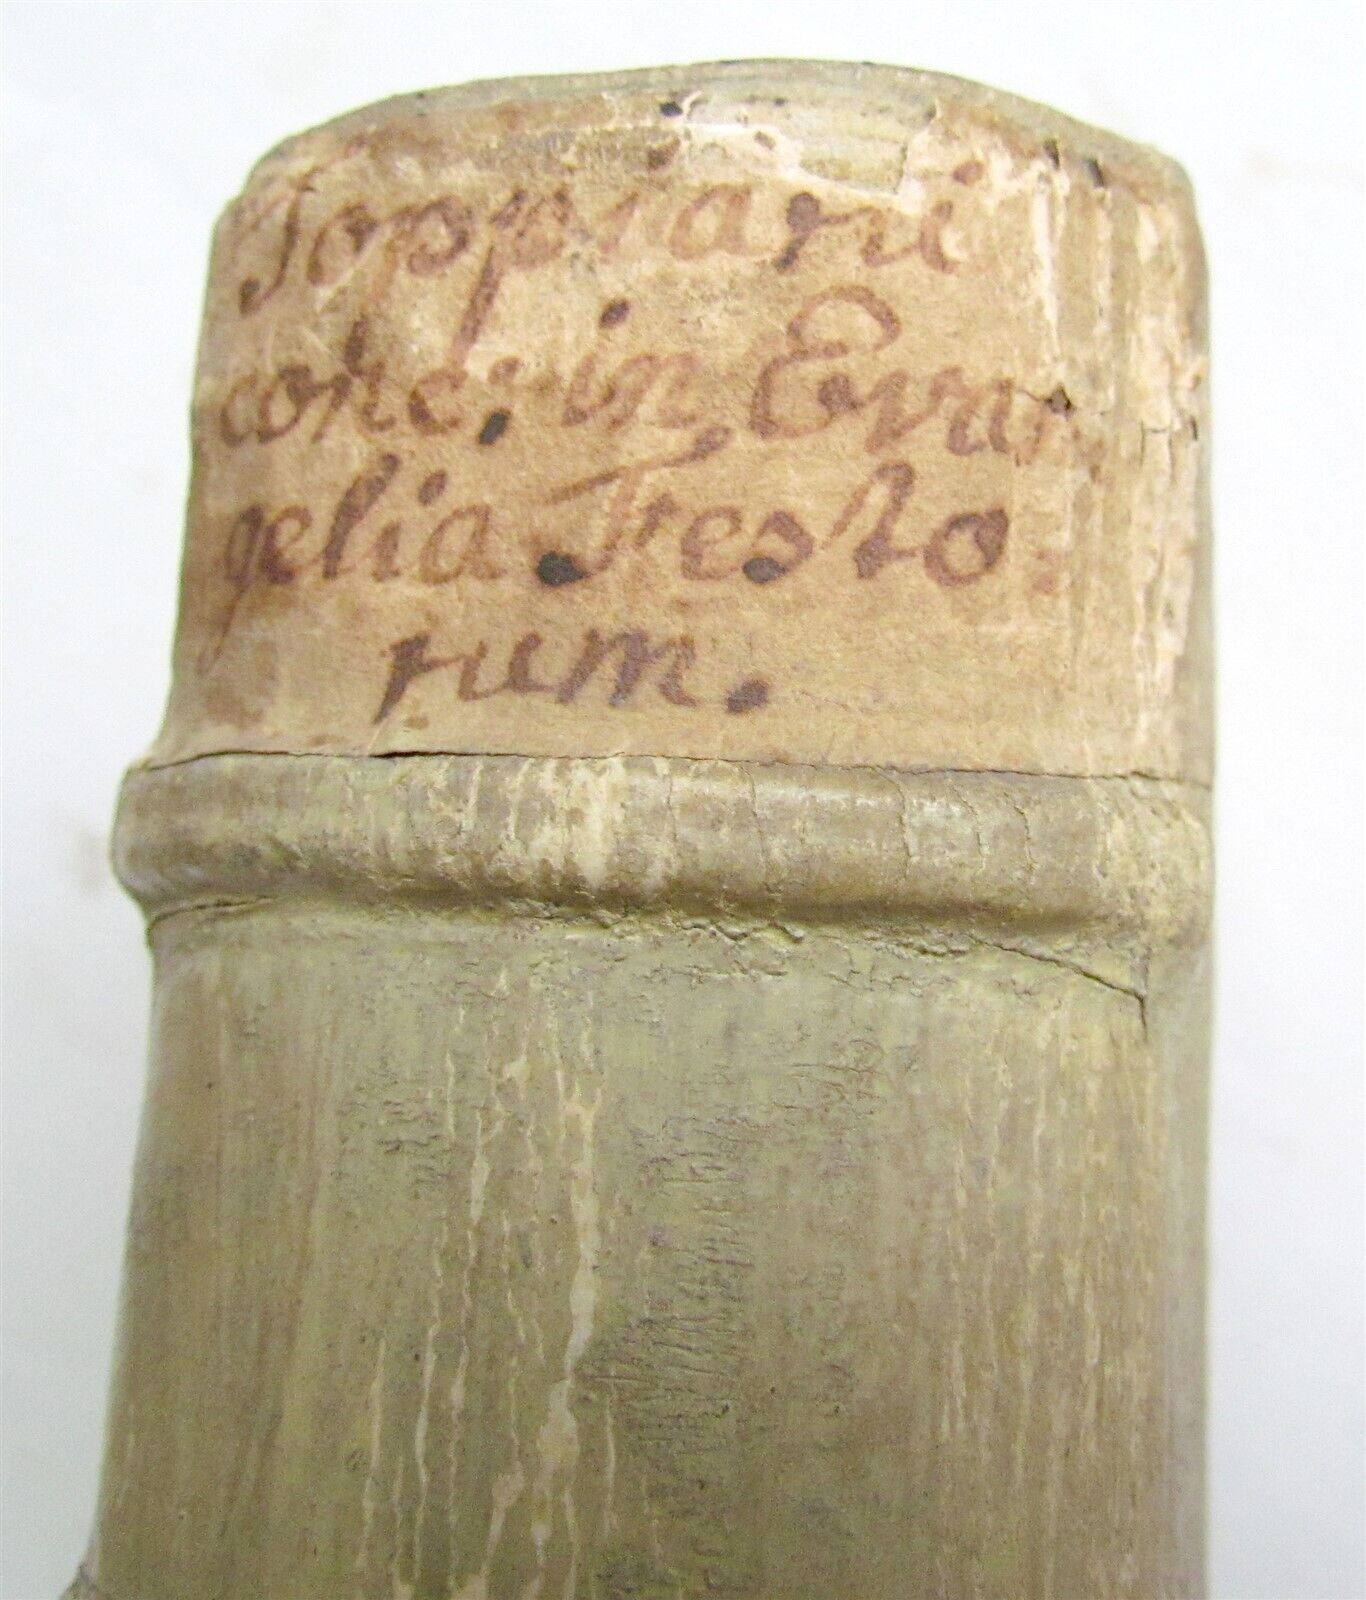 Toppiarii
conc. in Evan
gelia Festo
rum.